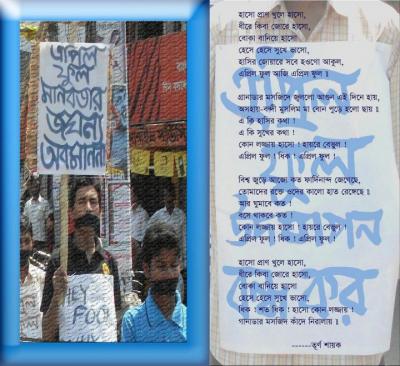 এপ্রিল
ফুল
মানবতার
জঘন্য
অবমাননা
HEY
FOO
হাসো প্রাণ খুলে হাসো,
ধীরে কিবা জোরে হাসো,
বোকা বানিয়ে হাসো
হেসে হেসে সুখে ভাসো,
হাসির জোয়ারে সবে হওগো আকুল,
এপ্রিল ফুল আজি এপ্রিল ফুল ॥
গ্রানাডার মসজিদে জ্বললো আগুন এই দিনে হায়,
অসহায়-বন্দী মুসলিম মা বোন পুড়ে হলো ছায়
এ কি হাসির কথা !
এ কি সুখের কথা !
কোন লজ্জায় হাসো ! হায়রে বেভুল !
এপ্রিল ফুল ! ধিক ! এপ্রিল ফুল !
বিশ্ব জুড়ে আজো কত ফার্দিনান্দ জেগেছে,
তোমাদের রক্তে ওদের কালো হাত রেঙ্গেছে ॥
আর ঘুমাবে কত !
বসে থাকবে কত !
কোন লজ্জায় হাসো ! হায়রে বেভুল !
এপ্রিল ফুল ! ধিক ! এপ্রিল ফুল !
হাসো প্রাণ খুলে হাসো,
ধীরে কিবা জোরে হাসো,
বোকা বানিয়ে হাসো
হেসে হেসে সুখে ভাসো,
ধিক ! শত ধিক ! হাসো কোন লজ্জায় !
গানাডার মসজিদ কাঁদে নিরালায় ॥
------তূর্ণ শায়ক
এপ্রিল
ফুল